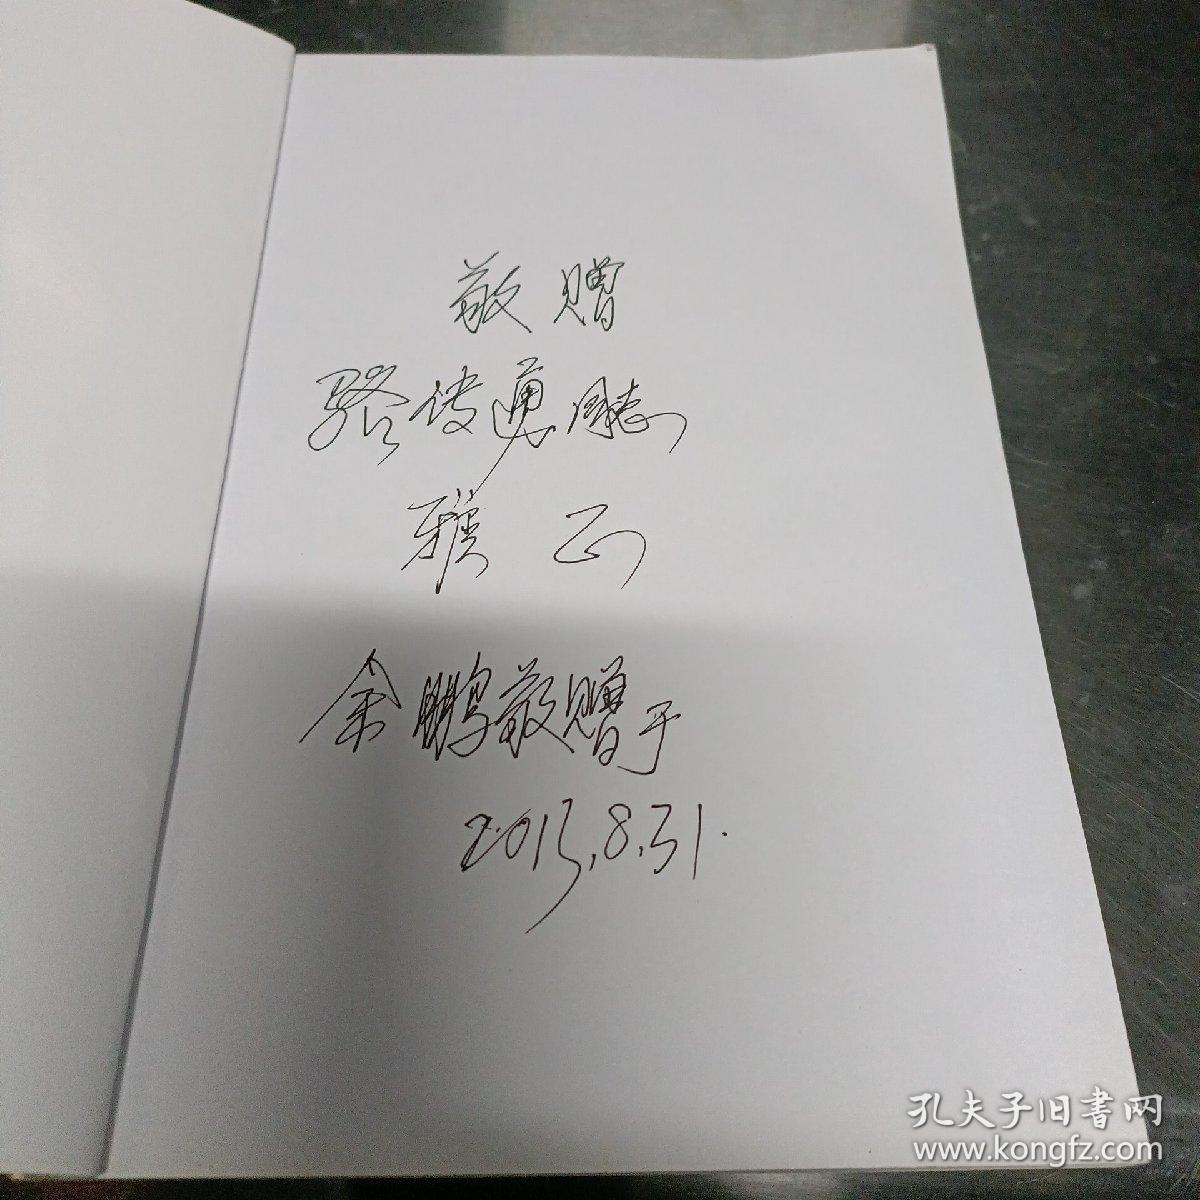 敬赠
骆传勇同志
雅正
余鹏敬赠于
2013.8.31.
孔夫子旧書网
www.kongfz.com